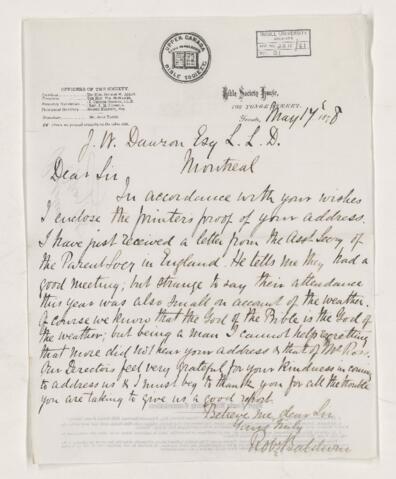 UPPER CANADA
BIBLE SOCIETY
McGILL UNIVERSITY
ARCHIVES
ACC. NO.
REF.
OFFICERS OF THE SOCIETY.
Bible Society House,
102 YONGE STREET,
Toronto, May 17th 1878
J. W. Dawson Esq L. L. D.
Montreal
Dear Sir
In accordance with your wishes
I enclose the printers proof of your address.
I have just received a letter from the Asst. Secy of
the Parent Socy in England. He tells me they had a
good meeting; but strange to say their attendance
this year was also small on account of the weather.
Of course we know that the God of the Bible is the God of
the weather; but being a man I cannot help regretting
that more did not hear your address & that of Mr Ross.
Our Directors feel very grateful for your kindness in coming
to address us & I must beg to thank you for all the trouble
you are taking to give us a good report.
Believe me, dear Sir
Yours truly
Robt Baldwin